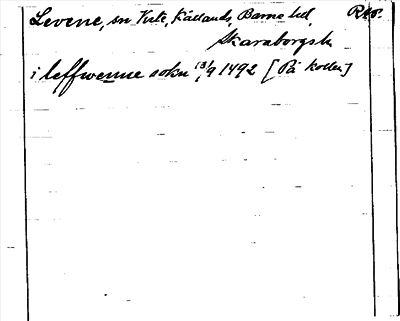 Levene, sn Viste, Kållands, Barne hd, RAP.
Skaraborgs l.
i leffwenne sokn 13/9 1492 [På kollen]